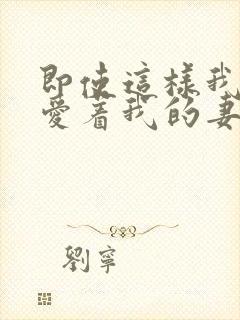 即使這樣我
愛着我的妻
劉寧